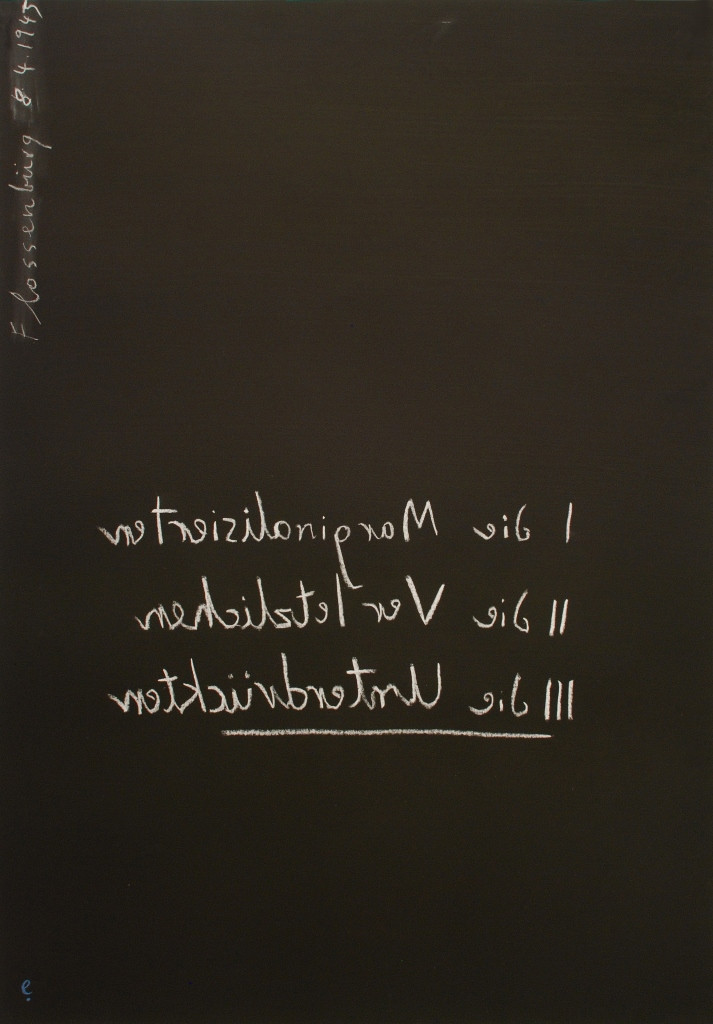 Flossenbürg 8.4.1945
I die Marginalisierten
II die Verletzlichen
III die Unterdrückten
e.